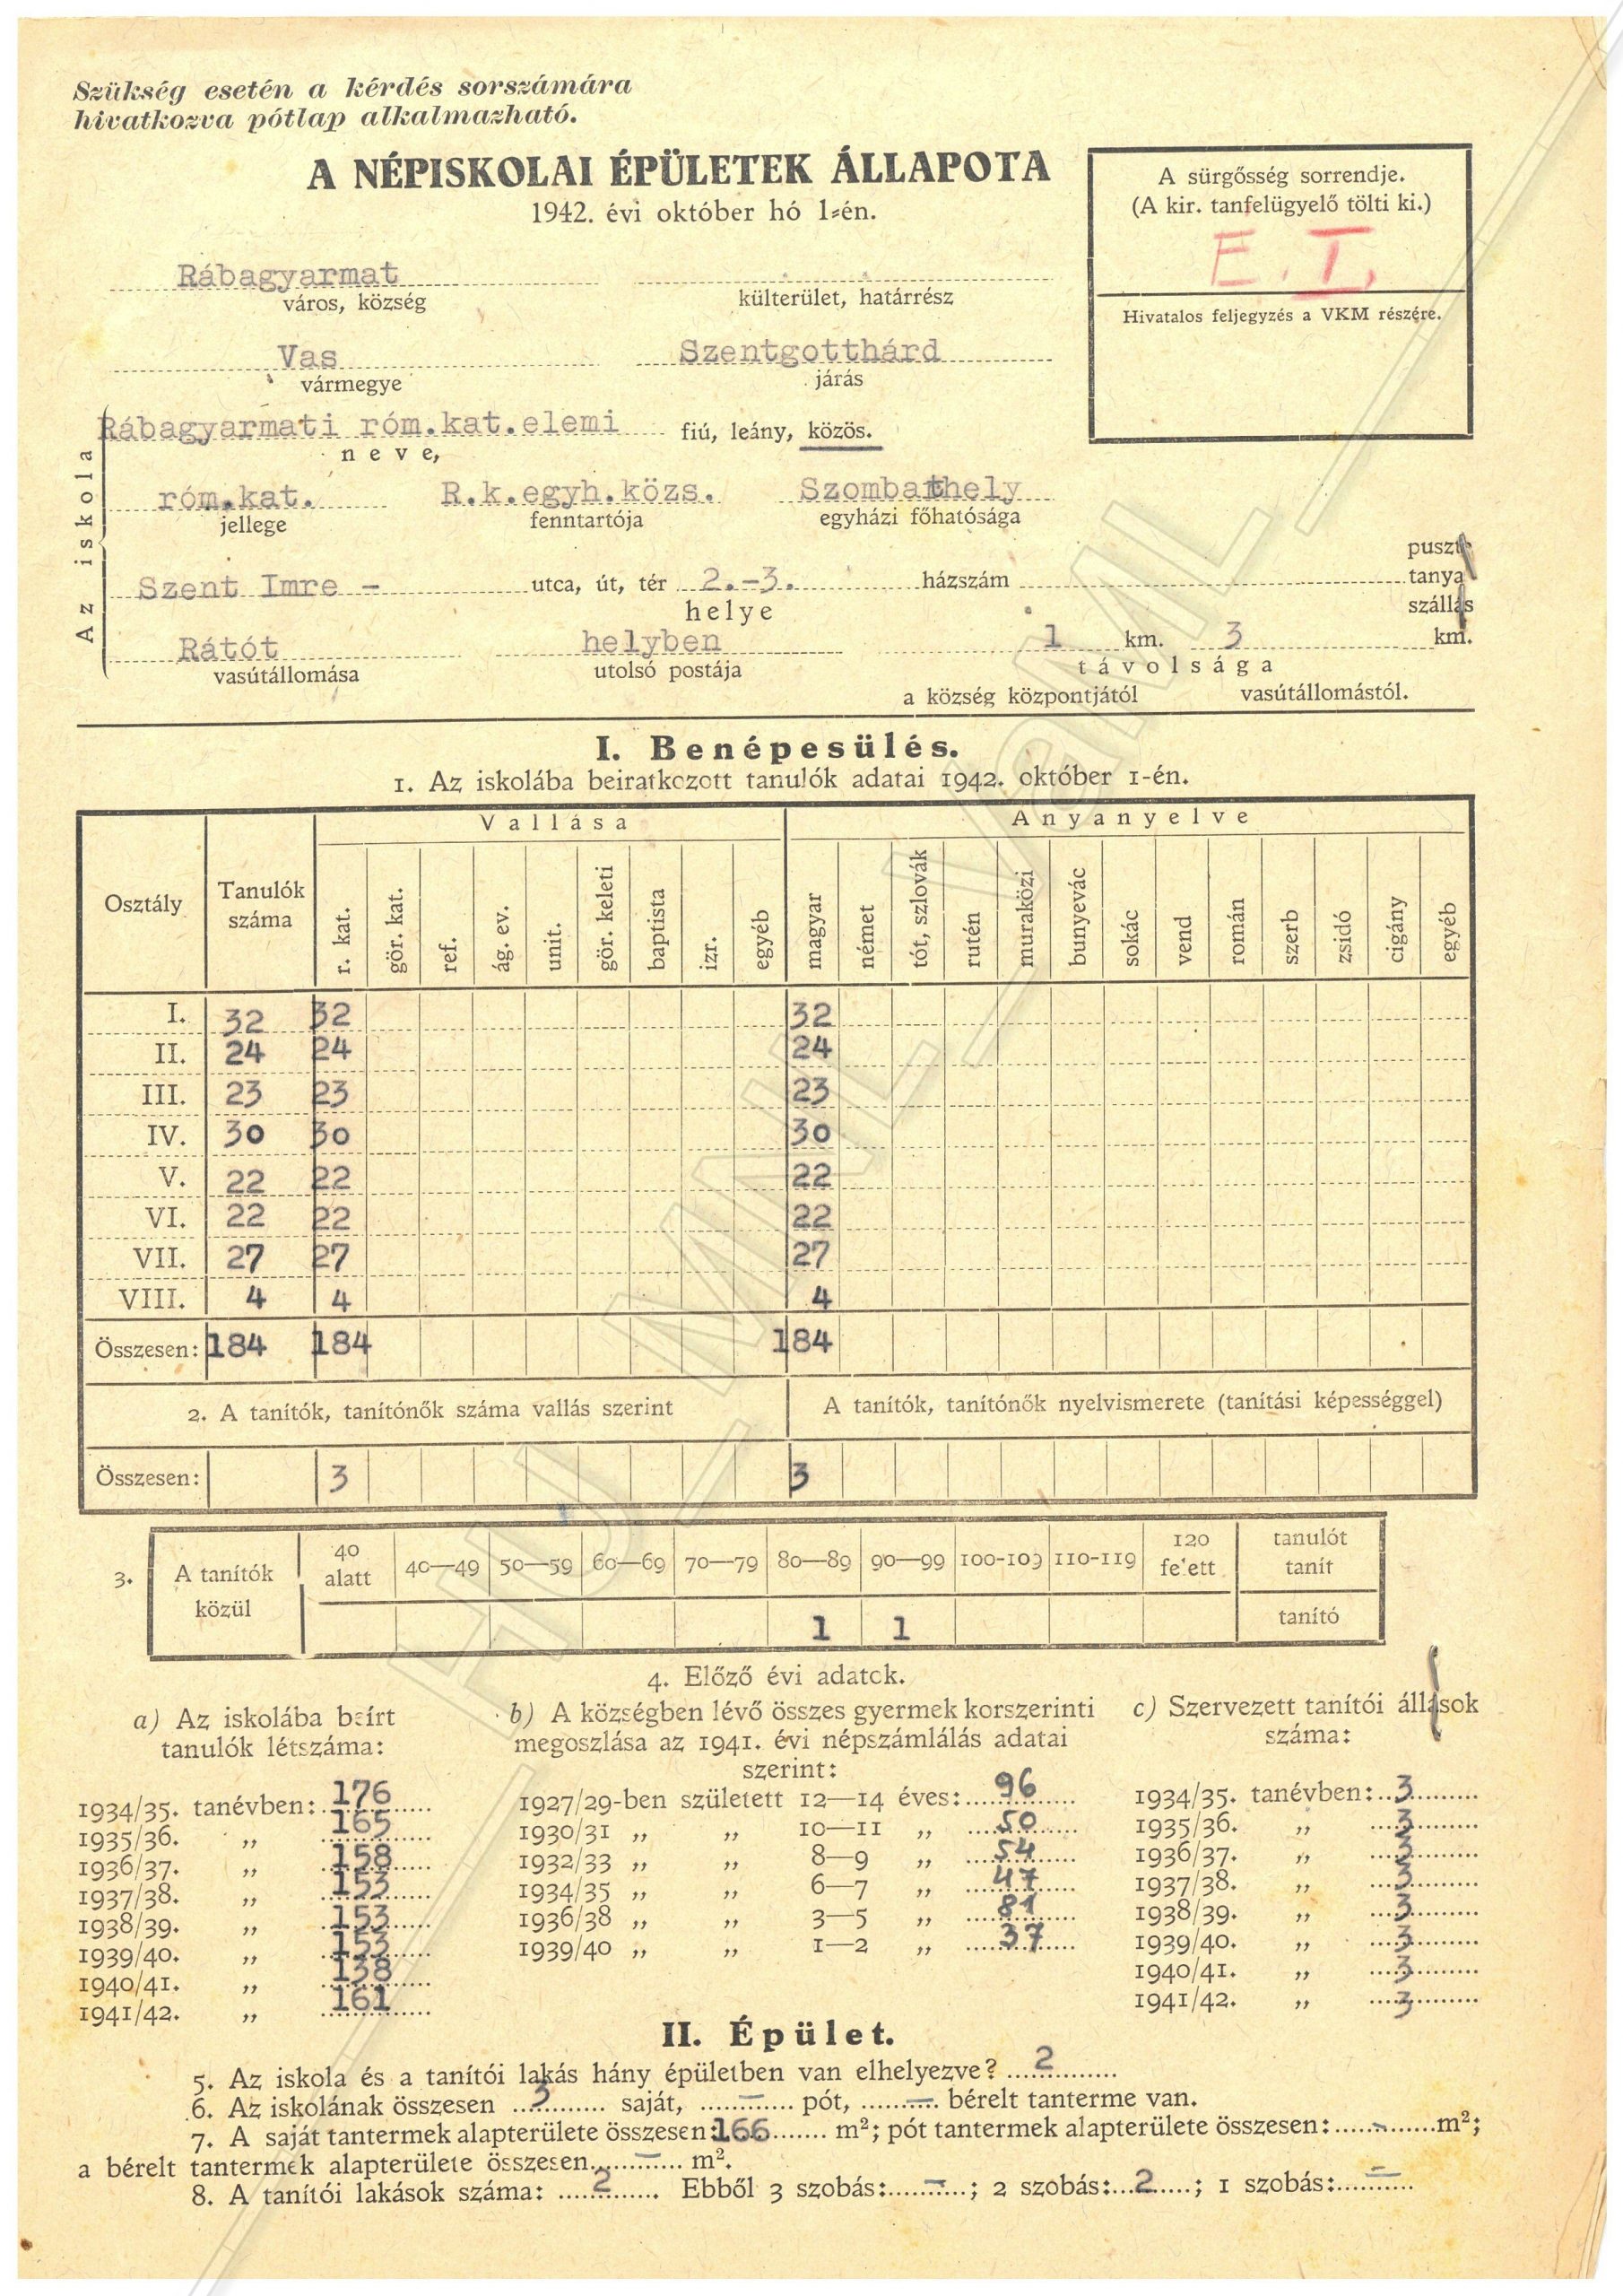 Szükség esetén a kérdés sorszámára
hivatkozva pótlap alkalmazható.
A NÉPISKOLAI ÉPÜLETEK ÁLLAPOTA
1942. évi október hó 1-én.
A sürgősség sorrendje.
(A kir. tanfelügyelő tölti ki.)
E. I.
Hivatalos feljegyzés a VKM részére.
Rábagyarmat
város, község külterület, határrész
Vas Szentgotthárd
vármegye járás
Az iskola
Rábagyarmati róm.kat.elemi fiú, leány, közös.
neve,
róm.kat. R.k.egyh.közs. Szombathely
jellege fenntartója egyházi főhatósága
Szent Imre - utca, út, tér 2.-3. házszám puszta tanya szállás
helye
Rátót helyben 1 km. 3 km.
vasútállomása utolsó postája távolsága
a község központjától vasútállomástól.
I. Benépesülés.
1. Az iskolába beiratkozott tanulók adatai 1942. október 1-én.
Osztály Tanulók száma Vallása Anyanyelve
r. kat. gör. kat. ref. ág. ev. unit. gör. keleti baptista izr. egyéb magyar német tót, szlovák rutén muraközi bunyevác sokác vend román szerb zsidó cigány egyéb
I. 32 32 32
II. 24 24 24
III. 23 23 23
IV. 30 30 30
V. 22 22 22
VI. 22 22 22
VII. 27 27 27
VIII. 4 4 4
Összesen: 184 184 184
2. A tanítók, tanítónők száma vallás szerint A tanítók, tanítónők nyelvismerete (tanítási képességgel)
Összesen: 3 3
3. A tanítók közül 40 alatt 40—49 50—59 60—69 70—79 80—89 90—99 100-109 110-119 120 felett tanulót tanít
1 1 tanító
4. Előző évi adatok.
a) Az iskolába beírt
tanulók létszáma:
1934/35. tanévben: 176
1935/36. „ 165
1936/37. „ 158
1937/38. „ 153
1938/39. „ 153
1939/40. „ 153
1940/41. „ 138
1941/42. „ 161
b) A községben lévő összes gyermek korszerinti
megoszlása az 1941. évi népszámlálás adatai
szerint:
1927/29-ben született 12—14 éves: 96
1930/31 „ „ 10—11 „ 50
1932/33 „ „ 8—9 „ 54
1934/35 „ „ 6—7 „ 47
1936/38 „ „ 3—5 „ 81
1939/40 „ „ 1—2 „ 37
c) Szervezett tanítói állások
száma:
1934/35. tanévben: 3
1935/36. „ 3
1936/37. „ 3
1937/38. „ 3
1938/39. „ 3
1939/40. „ 3
1940/41. „ 3
1941/42. „ 3
II. Épület.
5. Az iskola és a tanítói lakás hány épületben van elhelyezve? 2
6. Az iskolának összesen 3 saját, — pót, — bérelt tanterme van.
7. A saját tantermek alapterülete összesen: 166 m²; pót tantermek alapterülete összesen: - m²;
a bérelt tantermek alapterülete összesen — m².
8. A tanítói lakások száma: 2. Ebből 3 szobás: —; 2 szobás: 2; 1 szobás: —
HU_MNL_VaML